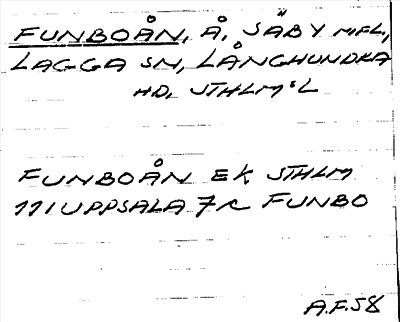 FUNBOÅN, Å, SÄBY MFL,
LAGGA SN, LÅNGHUNDRA
HD, STHLM:S L
FUNBOÅN EK STHLM
111 UPPSALA 7 c FUNBO
A.F.58